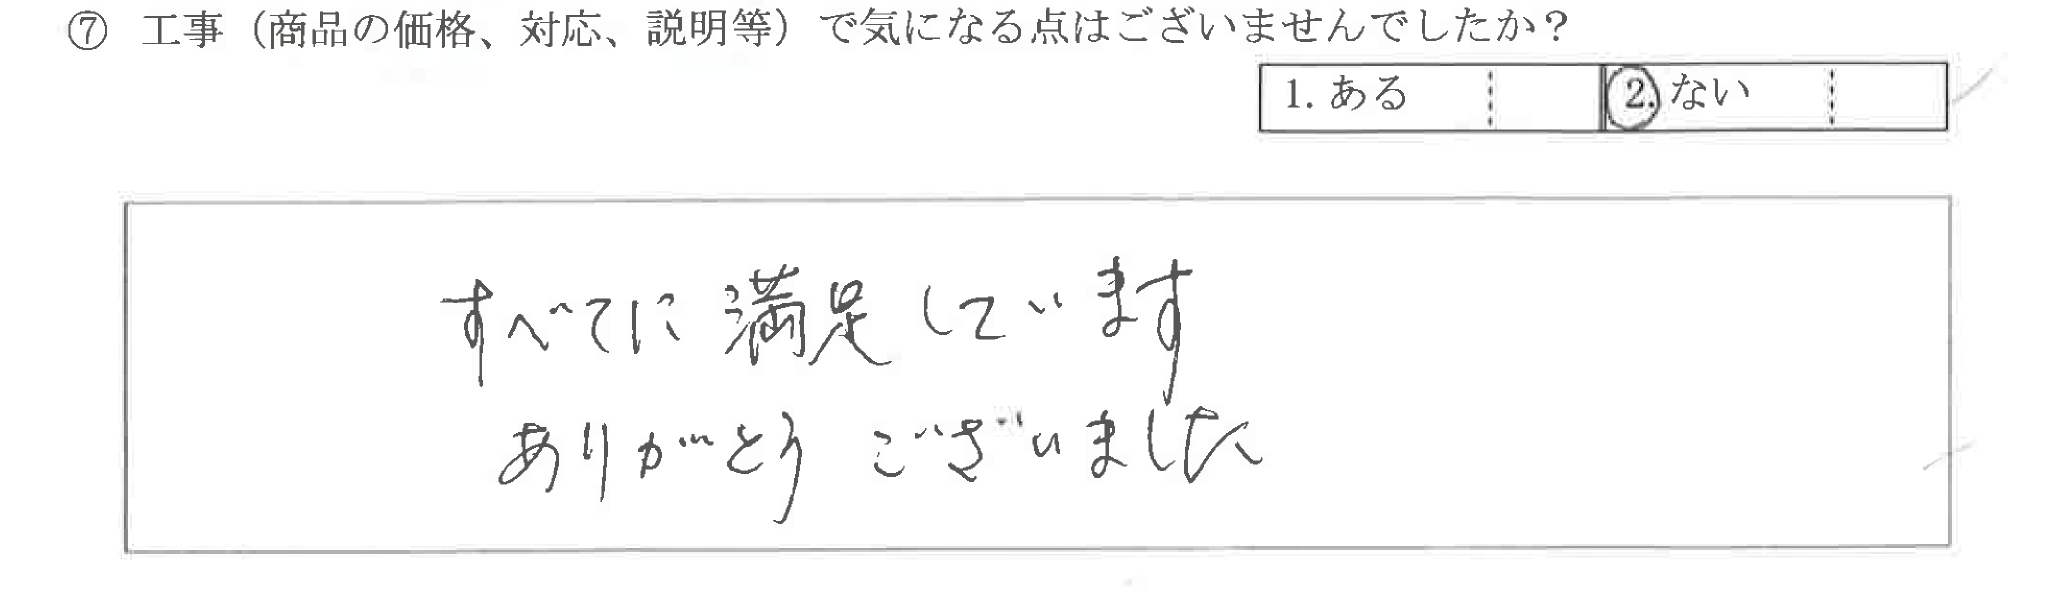 ⑦ 工事（商品の価格、対応、説明等）で気になる点はございませんでしたか？
1. ある 2. ない
すべてに満足しています
ありがとうございました